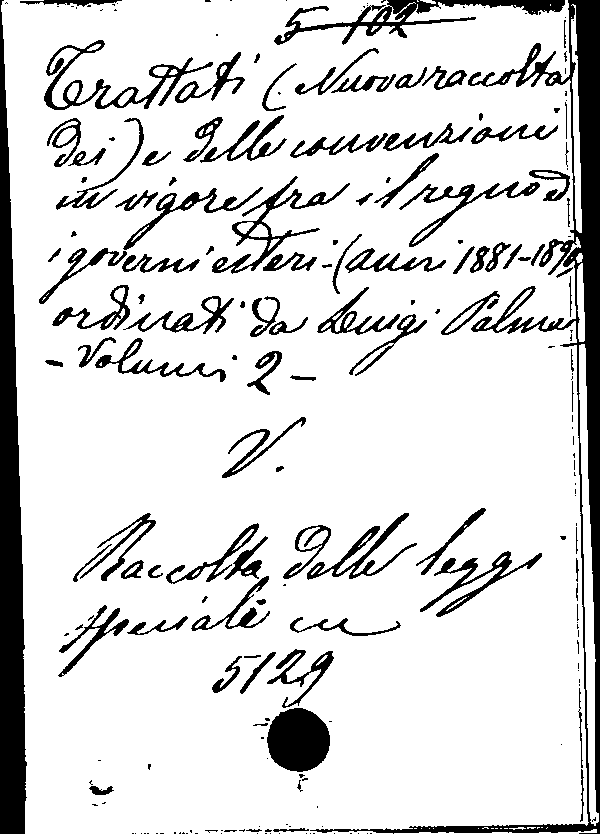 5 102
Trattati (Nuova raccolta
dei) e delle convenzioni
in vigore fra il regno ed
i governi esteri - (anni 1881-1890)
ordinati da Luigi Palma
- Volumi 2 -
V.
Raccolta delle leggi
speciali
5129